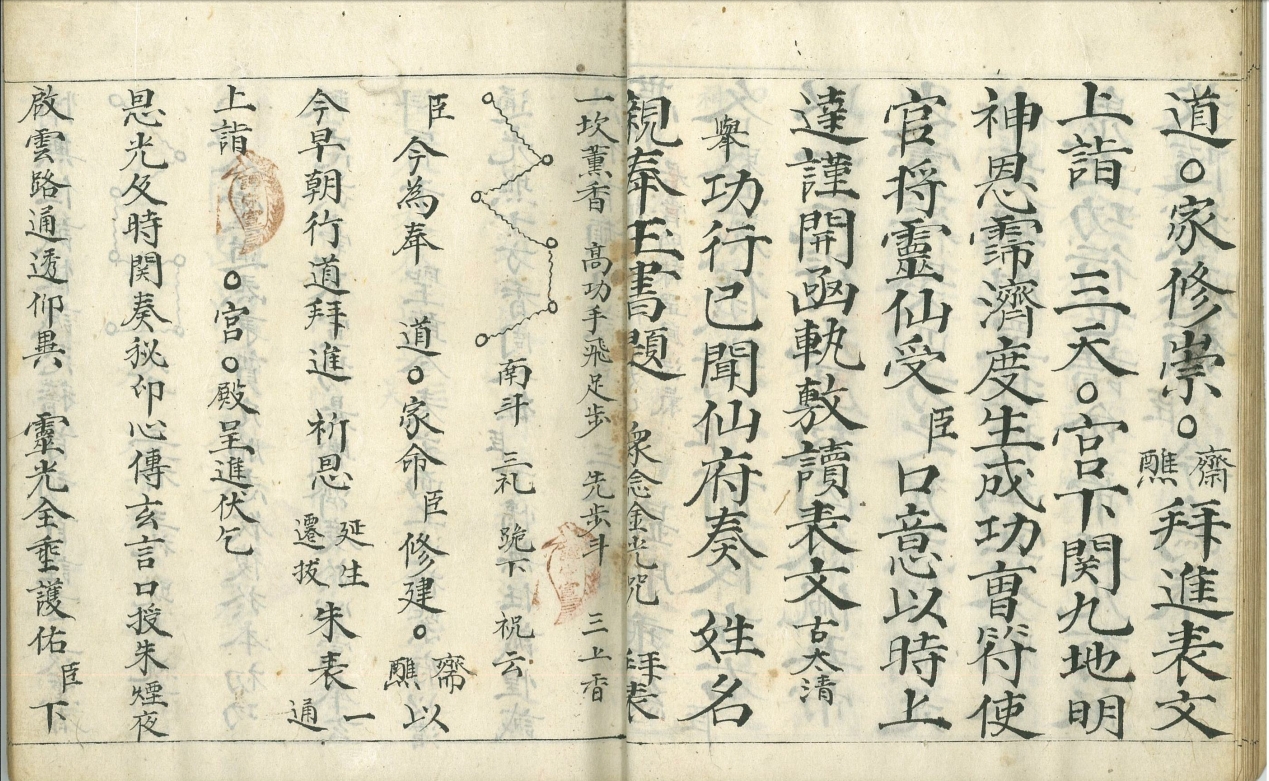 道○家修崇○齋醮拜進表文
上詣　三天○宮下関九地明
神恩霈濟度生成功曺符使
官将靈仙受臣口意以時上
達謹開函執敷讀表文古太清
舉功行已聞仙府奏　姓名
親奉玉書題　衆念金光咒　拜表
一坎薰香　高功手飛足步　先步斗　三上香
南斗　三礼　跪下　祝云
臣今為奉　道○家命臣修建○齋醮以
今早朝行道拜進　祈恩延生遷拔朱表一通
上詣　○宮○殿呈進伏乞
恩光及時関奏秘印心傳玄言口授朱煙夜
啟雲路通透仰異　靈光全垂護佑臣下